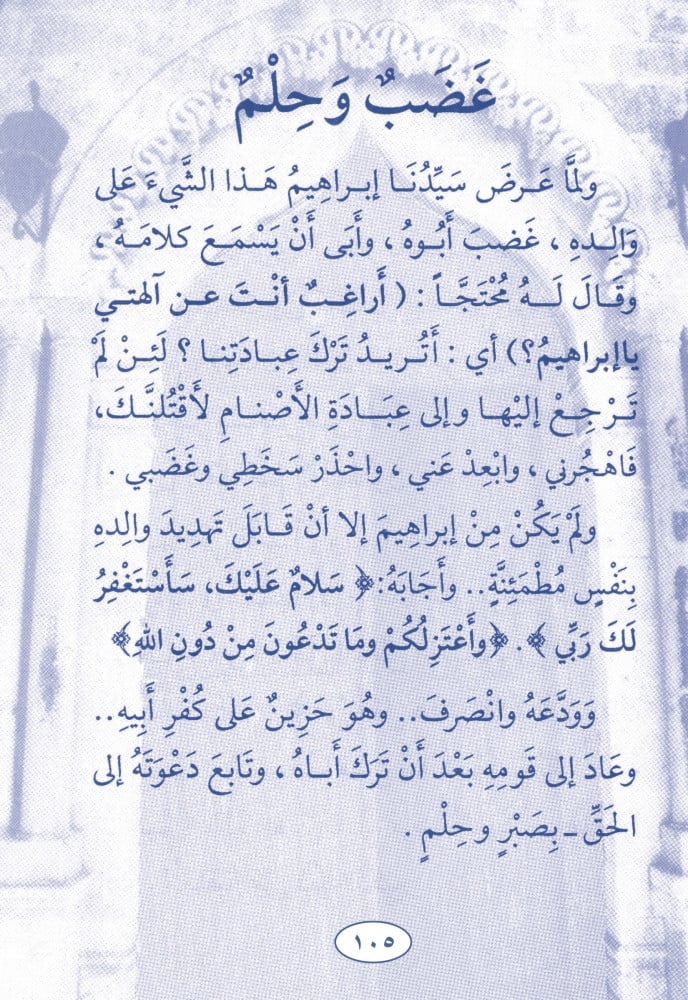 غَضَبٌ وَحِلْمٌ
ولمَّا عَـرضَ سَيِّدُنَـا إبـراهِيمُ هَـذا الشَّيءَ عَلى
وَالِـدهِ ، غَضبَ أَبُـوهُ ، وأَبَى أَنْ يَسْمَـعَ كلامَـهُ ،
وقَـالَ لَـــهُ مُحْتَجَّـاً : ( أَراغِـبٌ أنْـتَ عـن آلهتـي
ياإبراهيمُ؟) أي : أَتُـريـدُ تَرْكَ عِبـادَتِنـا ؟ لَئِـنْ لَمْ
تَـرْجِـعْ إليْهـا وإلى عِبَــادَةِ الأَصْنـامِ لأَقْتُلنَّـكَ،
فَاهْجُرني ، وابْعِدْ عَني ، واحْذَرْ سَخَطِي وغَضَبي .
ولَمْ يَكُنْ مِنْ إبراهِيمَ إلا أنْ قَـابَلَ تَهدِيدَ والِدهِ
بِنَفْسٍ مُطْمَئِنَّةٍ.. وأَجَابَهُ:﴿ سَلامٌ عَلَيْكَ، سَأَسْتَغْفِرُ
لَكَ رَبِّي ﴾. ﴿وأَعْتَزِلُكُمْ ومَا تَدْعُونَ مِنْ دُونِ اللهِ﴾
وَوَدَّعَهُ وانْصَرفَ.. وهُوَ حَزِينٌ عَلى كُفْرِ أَبِيهِ..
وعَادَ إلى قَومِهِ بَعْدَ أَنْ تَرَكَ أَبـاهُ ، وتَابعَ دَعْوَتَهُ إلى
الحَقِّ ـ بِصَبْرٍ وحِلْمٍ .
١٠٥